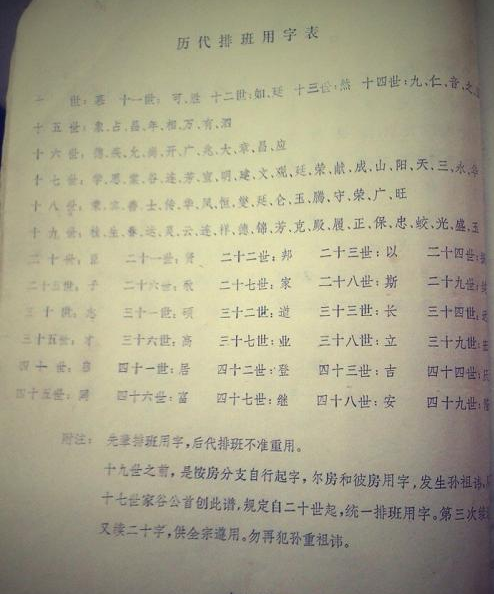 历代排班用字表
世：慕 十一世：可、胜 十二世：如、廷 十三世：然 十四世：九、仁、音、之、
十五世：占、昌、年、相、万、有、泗
十六世：德、英、允、尚、开、广、兆、大、章、昌、应
十七世：学、思、蒙、谷、连、芳、宣、明、建、文、观、廷、荣、献、成、山、阳、天、三、永、
十八世：立、善、士、传、华、凤、恒、楚、廷、仑、玉、腾、守、荣、广、旺
十九世：桂、生、春、运、灵、云、连、祥、德、锦、芳、克、殿、履、正、保、忠、蛟、光、盛、玉
二十世：臣 二十一世：贤 二十二世：邦 二十三世：以 二十四世：
二十五世：子 二十六世： 二十七世：家 二十八世：斯 二十九世：
三十世：志 三十一世：硕 三十二世：道 三十三世：长 三十四世：
三十五世：才 三十六世：高 三十七世：业 三十八世：立 三十九世：
四十世： 四十一世：居 四十二世：登 四十三世：吉 四十四世：
四十五世： 四十六世：富 四十七世：继 四十八世：安 四十九世：
附注： 先辈排班用字，后代排班不准重用。
十九世之前，是按房分支自行起字，尔房和彼房用字，发生孙祖讳，
十七世家谷公首创此谱，规定自二十世起，统一排班用字。第三次
又续二十字，供全宗遵用。勿再犯孙重祖讳。